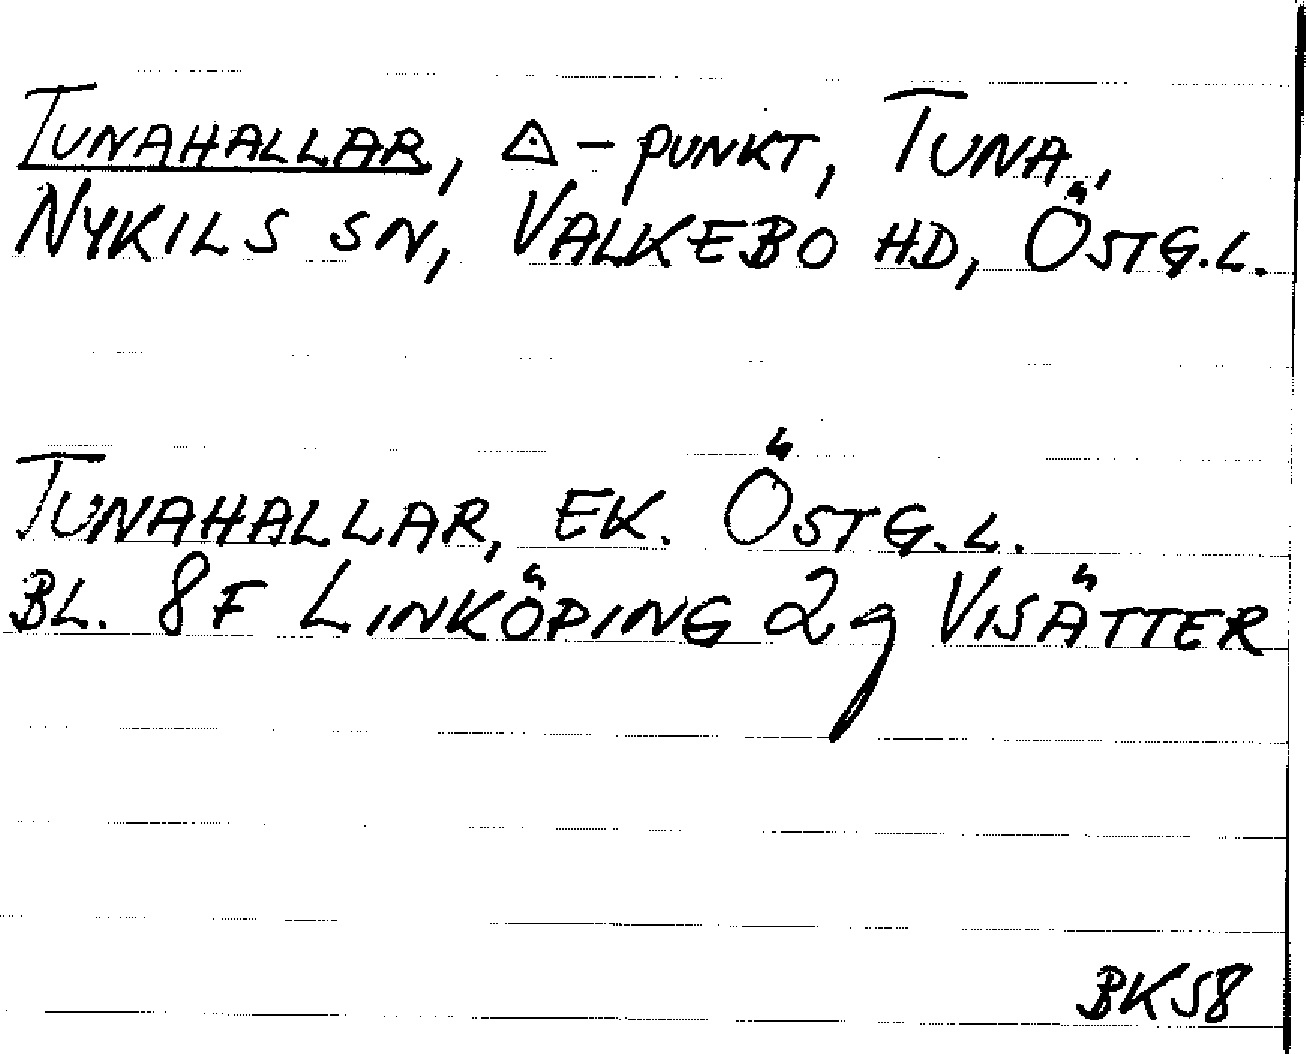 TUNAHALLAR, △-PUNKT, TUNA,
NYKILS SN, VALKEBO HD, ÖSTG.L.
TUNAHALLAR, EK. ÖSTG.L.
BL. 8F LINKÖPING 2g VISÄTTER
BK58